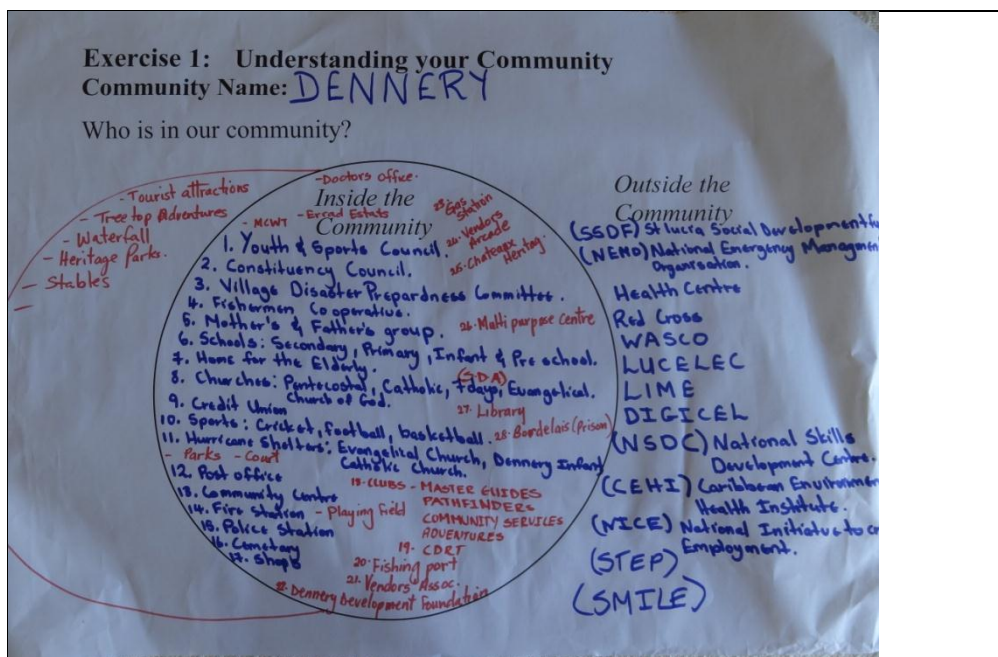 Exercise 1: Understanding your Community
Community Name: DENNERY
Who is in our community?
- Tourist attractions
- Tree top Adventures
- Waterfall
- Heritage Parks.
- Stables
-
- Doctors office.
Inside the
Community
- MCWT - Errad Estate
23. Gas
Station
24. Vendors
Arcade
25. Chateaux
Heritag
1. Youth & Sports Council.
2. Constituency Council.
3. Village Disaster Prepardness Committee.
4. Fishermen Cooperative.
5. Mother's & Father's group.
26. Multi purpose Centre
6. Schools: Secondary, Primary, Infant & Pre school.
7. Home for the Elderly.
(SDA)
8. Churches: Pentecostal, Catholic, 7days, Evangelical.
Church of God.
9. Credit Union
27. Library
10. Sports: Cricket, football, basketball.
28. Bordelais (Prison)
11. Hurricane Shelters: Evangelical Church, Dennery Infant
Catholic Church.
- Parks - Court
12. Post office
13. Community Centre
14. Fire Station - Playing field
15. Police Station
16. Cemetary
17. Shops
18. CLUBS - MASTER GUIDES
PATHFINDERS
COMMUNITY SERVICES
ADVENTURES
19. CDRT
20. Fishing port
21. Vendors' Assoc.
22. Dennery Development Foundation
Outside the
Community
(SSDF) St lucia Social Development
(NEMO) National Emergency Managmen
Organisation.
Health Centre
Red Cross
WASCO
LUCELEC
LIME
DIGICEL
(NSDC) National Skills
Development Centre.
(CEHI) Caribbean Environmen
Health Institute.
(NICE) National Initiative to cr
Employment.
(STEP)
(SMILE)